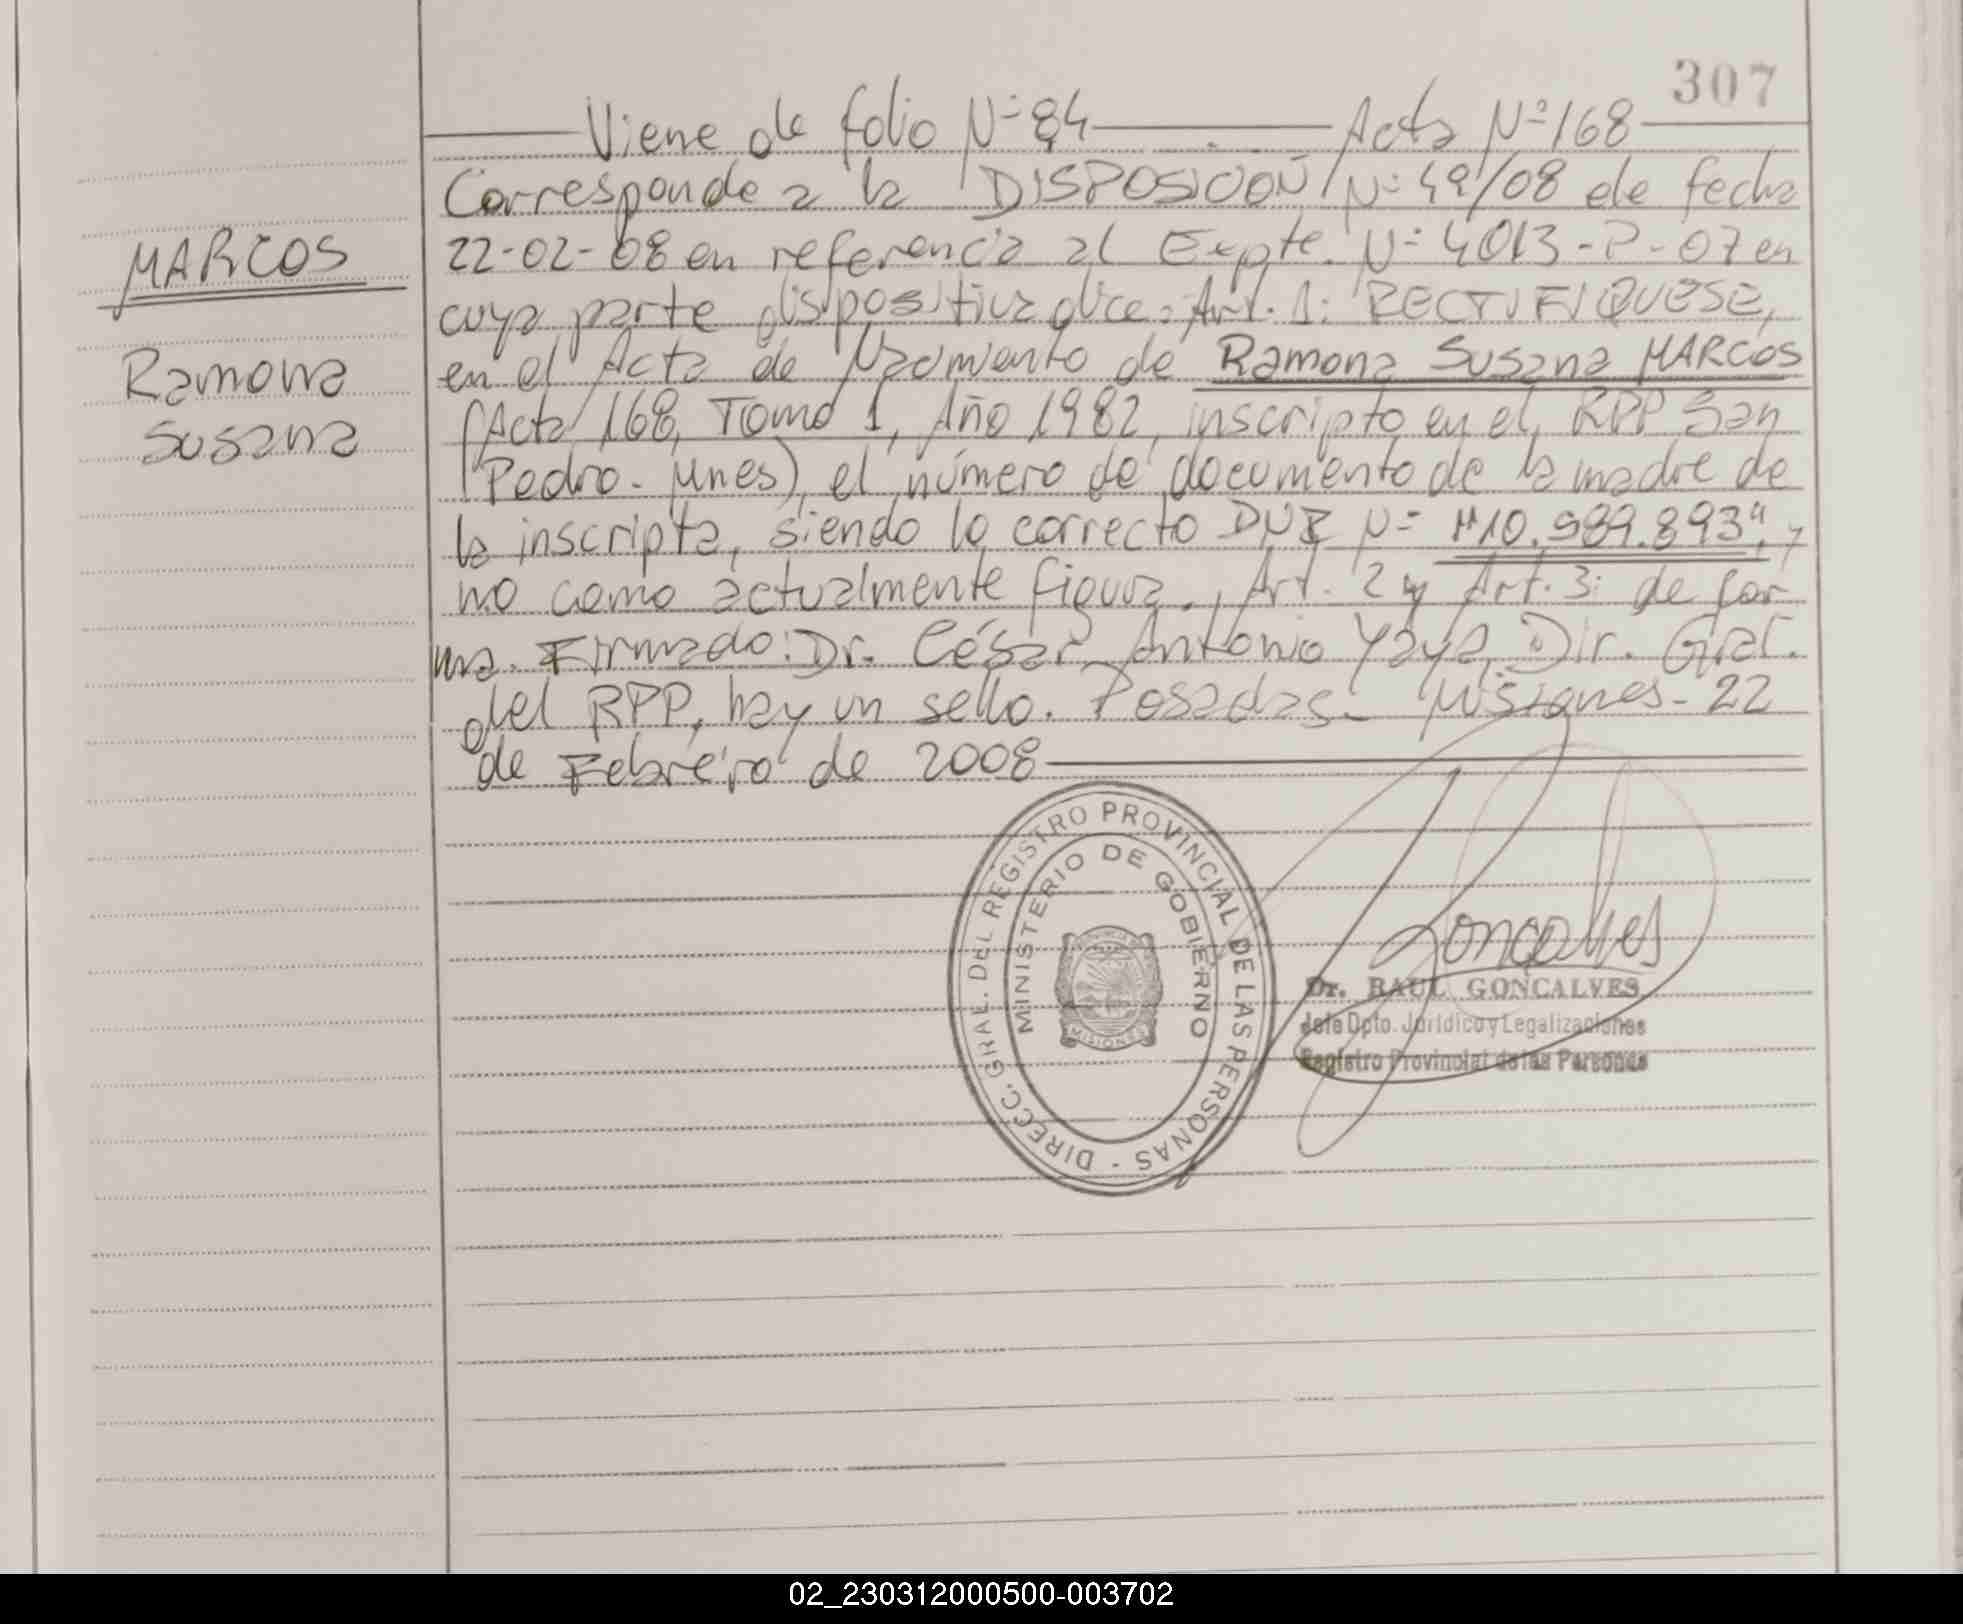 307
Viene de folio Nº 84 Acta Nº 168
Corresponde a la DISPOSICION Nº 49/08 de fecha
22-02-08 en referencia al Expte. Nº 4013-P-07 en
cuya parte dispositiva dice: Art. 1: RECTIFIQUESE,
en el Acta de Nacimiento de Ramona Susana MARCOS
(Acta 168, Tomo 1, Año 1982, inscripto en el RPP San
Pedro - Mnes) el número de documento de la madre de
la inscripta, siendo lo correcto DNI Nº "10.989.893", y
no como actualmente figura. Art. 2 y Art. 3: de for
ma. Firmado: Dr. César Antonio Yaya, Dir. Gral.
del RPP, hay un sello. Posadas - Misiones - 22
de Febrero de 2008
MARCOS
Ramona
Susana
DIRECC. GRAL. DEL REGISTRO PROVINCIAL DE LAS PERSONAS -
MINISTERIO DE GOBIERNO
MISIONES
Goncalves
Dr. RAUL GONCALVES
Jefe Dpto. Jurídico y Legalizaciones
Registro Provincial de las Personas
02_230312000500-003702